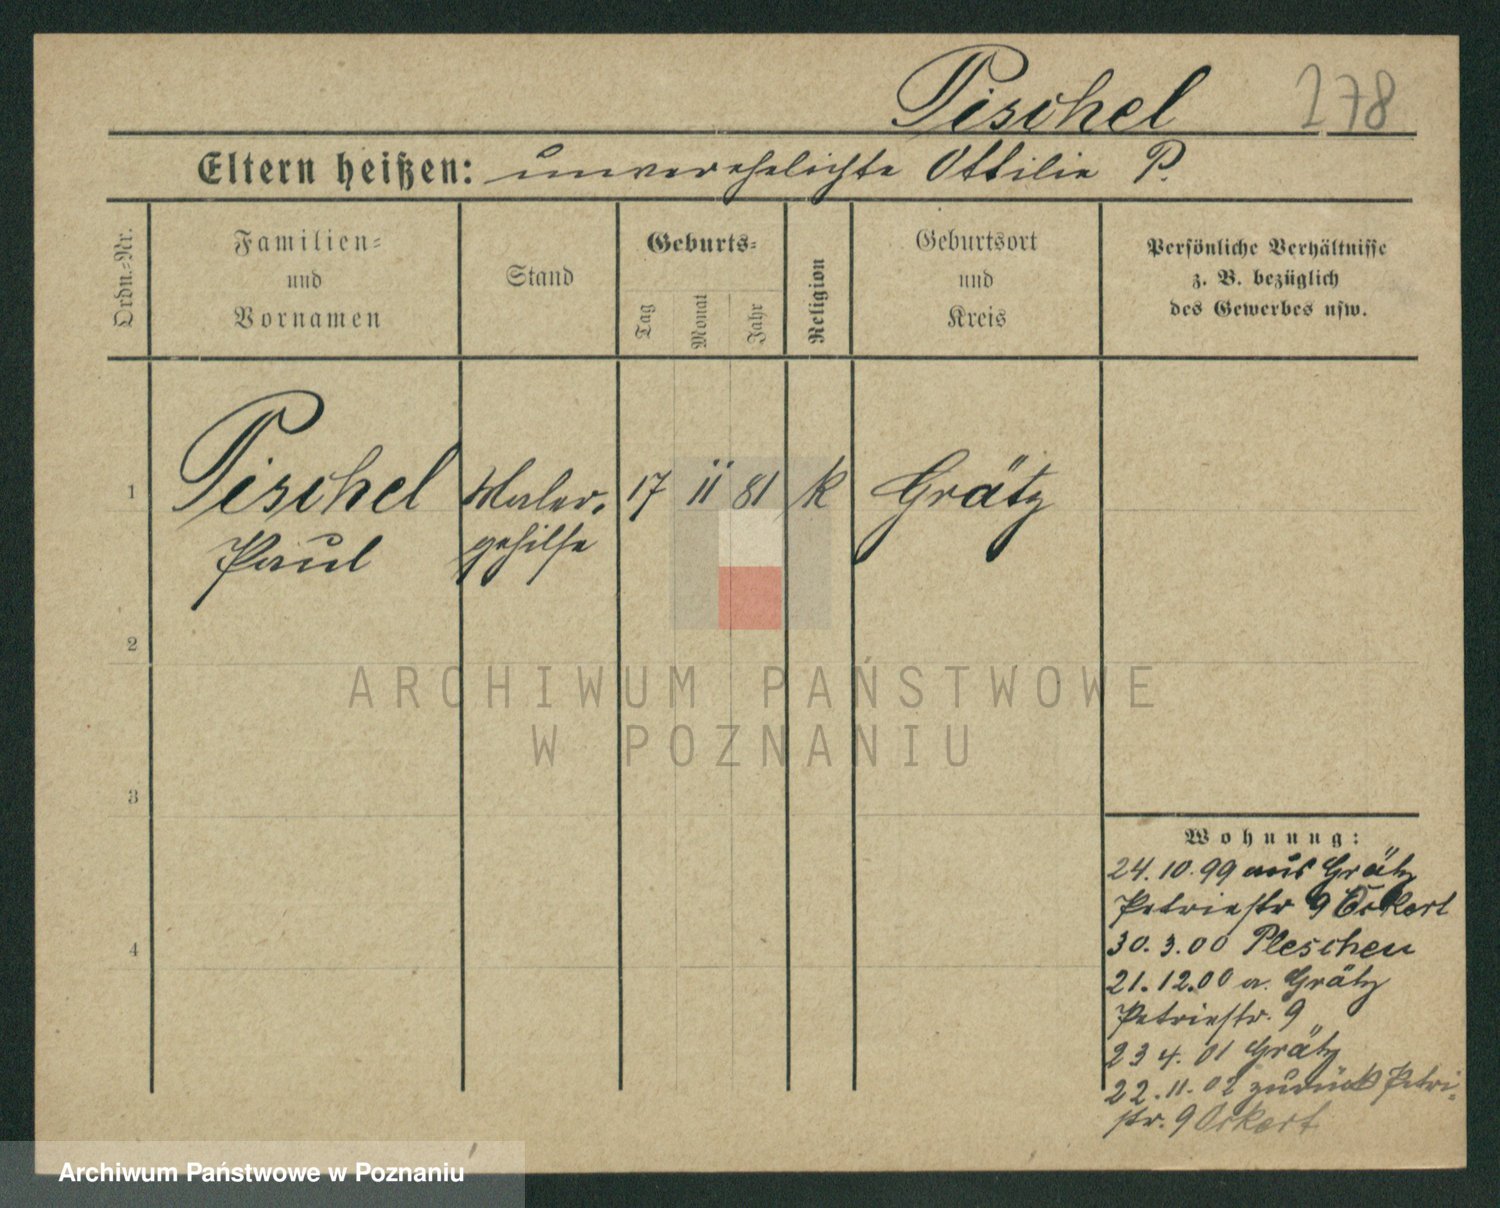 Pischel 278
Eltern heißen: unverehelichte Ottilie P.
Ordn.-Nr.
Familien-
und
Vornamen
Stand
Geburts-
Tag
Monat
Jahr
Religion
Geburtsort
und
Kreis
Persönliche Verhältnisse
z. B. bezüglich
des Gewerbes usw.
1 Pischel Maler- 17 11 81 k Grätz
Paul gehilfe
2
3
4
ARCHIWUM PAŃSTWOWE
W POZNANIU
Wohnung:
24.10.99 aus Grätz
Petriestr 9 Eckert
30.3.00 Pleschen
21.12.00 a. Grätz
Petriestr. 9
23 4. 01 Grätz
22.11.02 zurück Petri-
str. 9 Eckert
Archiwum Państwowe w Poznaniu